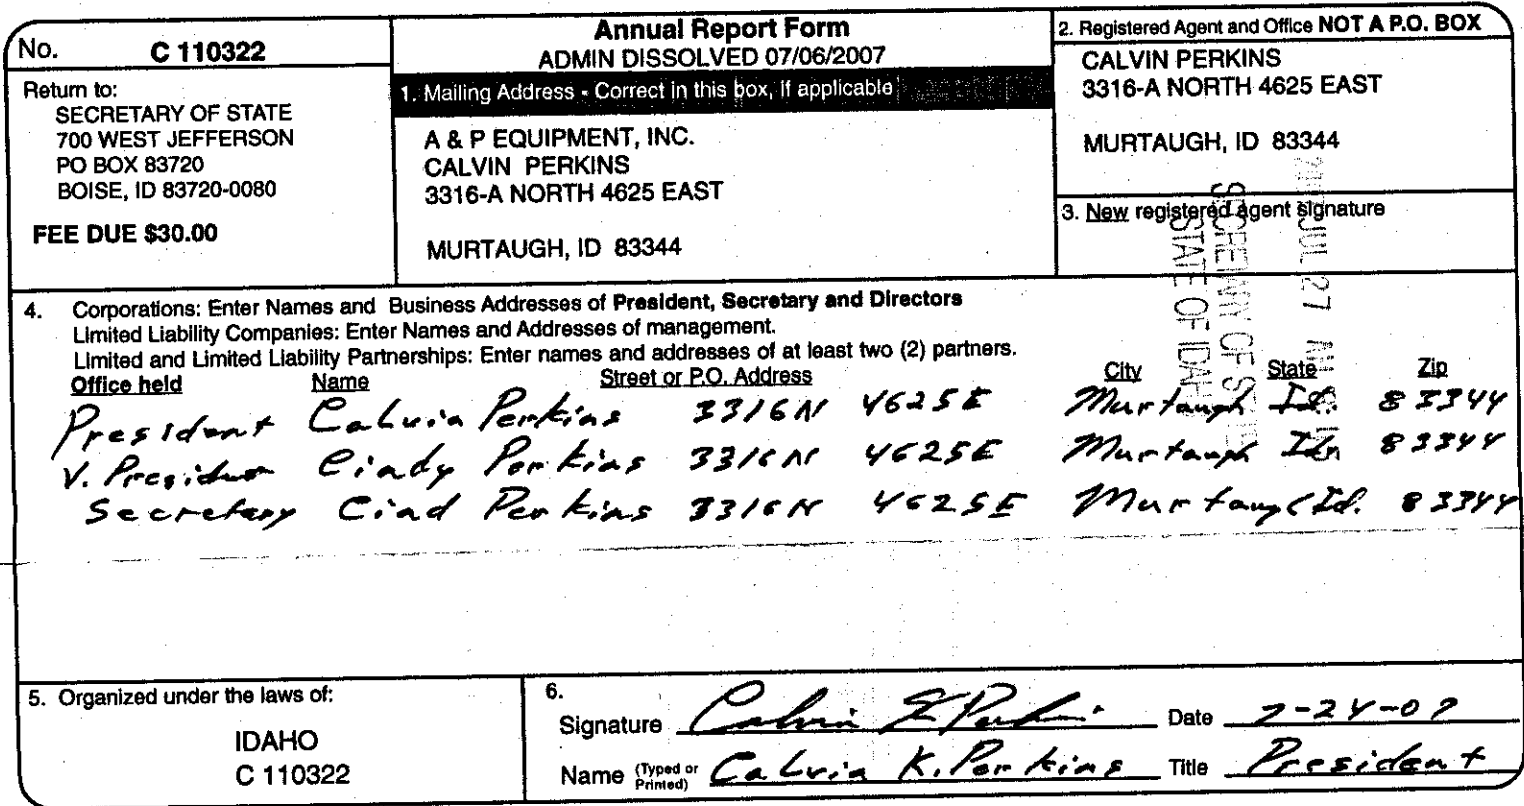 No. C 110322
Return to:
SECRETARY OF STATE
700 WEST JEFFERSON
PO BOX 83720
BOISE, ID 83720-0080
FEE DUE $30.00
Annual Report Form
ADMIN DISSOLVED 07/06/2007
1. Mailing Address - Correct in this box, if applicable
A & P EQUIPMENT, INC.
CALVIN PERKINS
3316-A NORTH 4625 EAST
MURTAUGH, ID 83344
2. Registered Agent and Office NOT A P.O. BOX
CALVIN PERKINS
3316-A NORTH 4625 EAST
MURTAUGH, ID 83344
3. New registered agent signature
JUL 27
SECRETARY OF
STATE OF IDAHO
4. Corporations: Enter Names and Business Addresses of President, Secretary and Directors
Limited Liability Companies: Enter Names and Addresses of management.
Limited and Limited Liability Partnerships: Enter names and addresses of at least two (2) partners.
Office held Name Street or P.O. Address City State Zip
President Calvin Perkins 3316N 4625E Murtaugh Id. 83344
V. President Cindy Perkins 3316N 4625E Murtaugh Id 83344
Secretary Cind Perkins 3316N 4625E Murtaugh Id. 83344
5. Organized under the laws of:
IDAHO
C 110322
6.
Signature Calvin K Perkins Date 7-24-07
Name (Typed or Printed) Calvin K. Perkins Title President